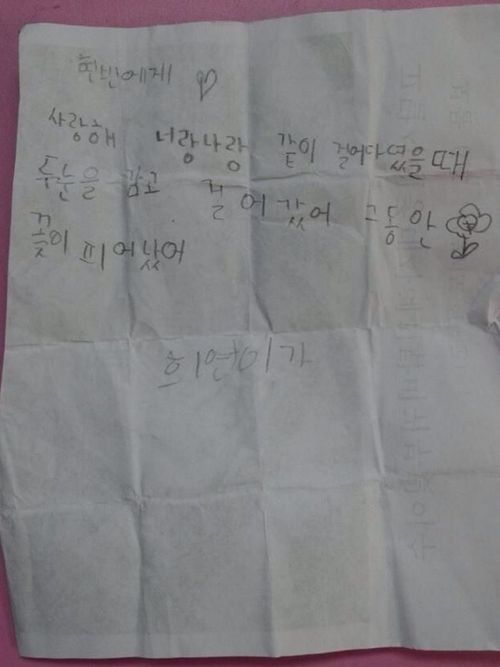 현빈에게 ♡
사랑해 너랑나랑 같이 걸어다녔을때
두눈을 감고 걸어갔어 그동안
꽃이 피어났어
희연이가